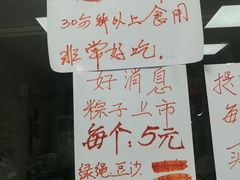 30分钟以上食用
非常好吃.
好消息
粽子上市
每个:5元
绿绳豆沙
提
每